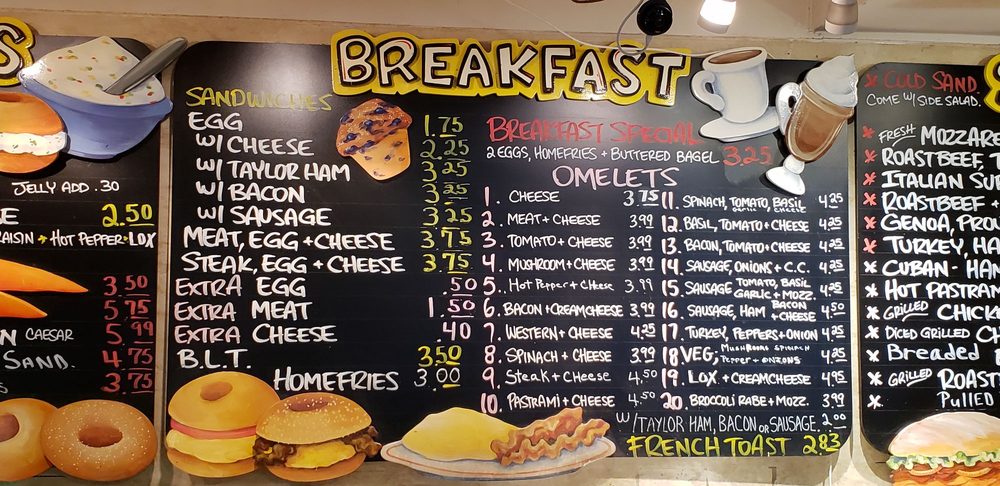 S
JELLY ADD .30
2.50
RAISIN + HOT PEPPER + LOX
3.50
5.75
CAESAR 5.99
SAND. 4.75
3.75
BREAKFAST
SANDWICHES
EGG 1.75
W/ CHEESE 2.25
W/ TAYLOR HAM 3.25
W/ BACON 3.25
W/ SAUSAGE 3.25
MEAT, EGG + CHEESE 3.75
STEAK, EGG + CHEESE 3.75
EXTRA EGG .50
EXTRA MEAT 1.50
EXTRA CHEESE .40
B.L.T. 3.50
HOMEFRIES 3.00
BREAKFAST SPECIAL
2 EGGS, HOMEFRIES + BUTTERED BAGEL 3.25
OMELETS
1. CHEESE 3.75
2. MEAT + CHEESE 3.99
3. TOMATO + CHEESE 3.99
4. MUSHROOM + CHEESE 3.99
5. Hot Pepper + Cheese 3.99
6. BACON + CREAMCHEESE 3.99
7. WESTERN + CHEESE 4.25
8. SPINACH + CHEESE 3.99
9. Steak + Cheese 4.50
10. PASTRAMI + CHEESE 4.50
11. SPINACH, TOMATO, BASIL garlic + cheese 4.25
12. BASIL, TOMATO + CHEESE 4.25
13. BACON, TOMATO + CHEESE 4.25
14. SAUSAGE, ONIONS + C.C. 4.25
15. SAUSAGE TOMATO, BASIL GARLIC + MOZZ. 4.25
16. SAUSAGE, HAM BACON + CHEESE 4.50
17. TURKEY, PEPPERS + ONION 4.25
18 VEG, MUSHROOM SPINACH PEPPER + ONIONS 4.25
19. LOX + CREAMCHEESE 4.95
20. BROCCOLI RABE + MOZZ. 3.99
W/ TAYLOR HAM, BACON OR SAUSAGE. 2.00
FRENCH TOAST 2.83
COLD SAND.
COME W/ SIDE SALAD.
FRESH MOZZARE
ROASTBEEF, T
ITALIAN SU
ROASTBEEF +
GENOA, PROV
TURKEY, HA
CUBAN - HAM
HOT PASTRAM
GRILLED CHICK
DICED GRILLED CH
Breaded
GRILLED ROAST
PULLED